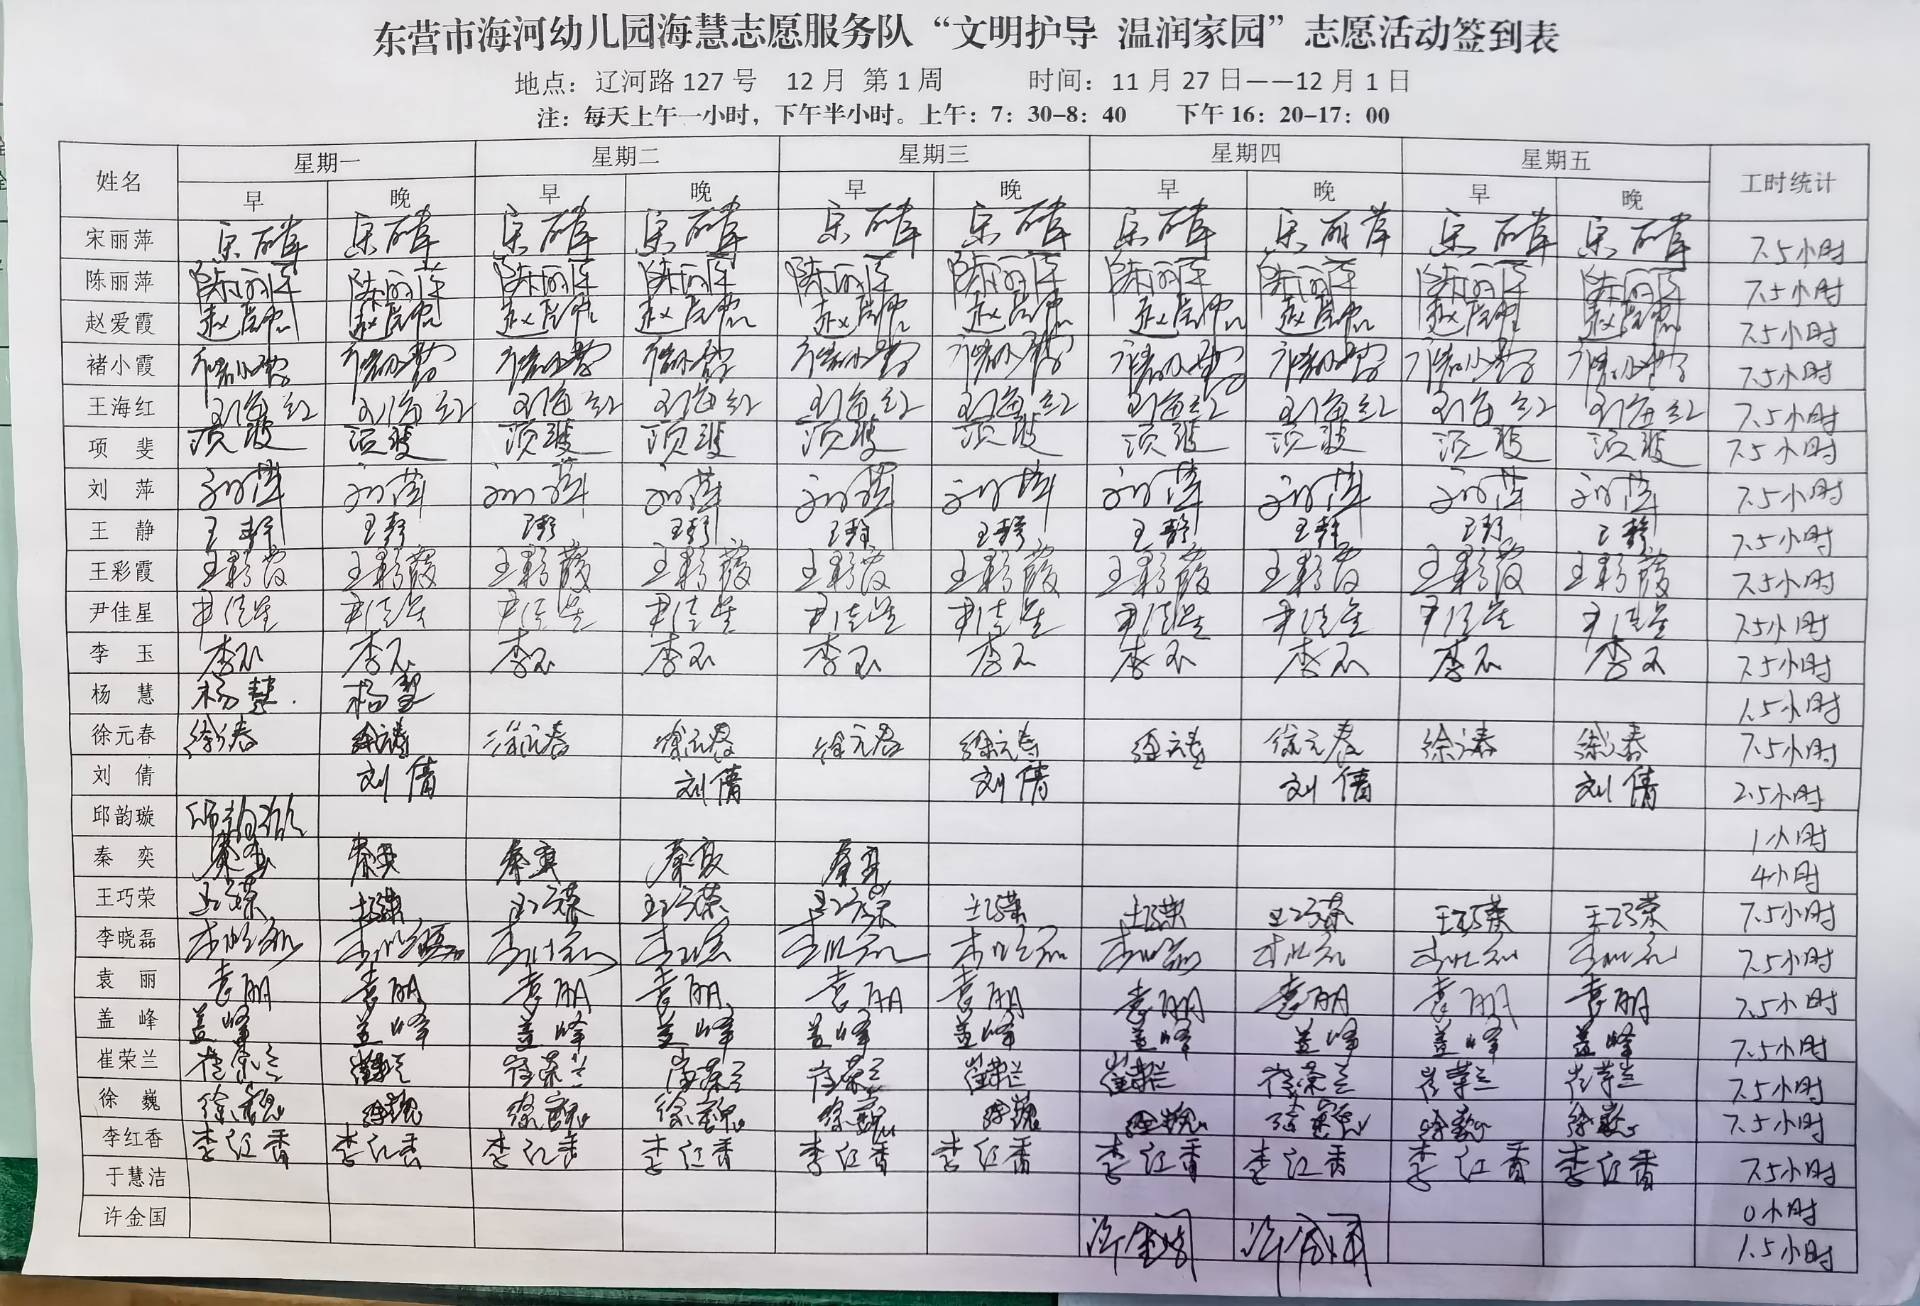 东营市海河幼儿园海慧志愿服务队“文明护导 温润家园”志愿活动签到表
地点：辽河路127号 12月 第1周 时间：11月27日——12月1日
注：每天上午一小时，下午半小时。上午：7：30-8：40 下午16：20-17：00
姓名 星期一 星期二 星期三 星期四 星期五 工时统计
早 晚 早 晚 早 晚 早 晚 早 晚
宋丽萍 宋丽萍 宋丽萍 宋丽萍 宋丽萍 宋丽萍 宋丽萍 宋丽萍 宋丽萍 宋丽萍 宋丽萍 7.5小时
陈丽萍 陈丽萍 陈丽萍 陈丽萍 陈丽萍 陈丽萍 陈丽萍 陈丽萍 陈丽萍 陈丽萍 陈丽萍 7.5小时
赵爱霞 赵爱霞 赵爱霞 赵爱霞 赵爱霞 赵爱霞 赵爱霞 赵爱霞 赵爱霞 赵爱霞 赵爱霞 7.5小时
褚小霞 褚小霞 褚小霞 褚小霞 褚小霞 褚小霞 褚小霞 褚小霞 褚小霞 褚小霞 褚小霞 7.5小时
王海红 刘海红 刘海红 刘海红 刘海红 刘海红 刘海红 刘海红 刘海红 刘海红 刘海红 7.5小时
项斐 项斐 项斐 项斐 项斐 项斐 项斐 项斐 项斐 项斐 项斐 7.5小时
刘萍 刘萍 刘萍 刘萍 刘萍 刘萍 刘萍 刘萍 刘萍 刘萍 刘萍 7.5小时
王静 王静 王静 王静 王静 王静 王静 王静 王静 王静 王静 7.5小时
王彩霞 王彩霞 王彩霞 王彩霞 王彩霞 王彩霞 王彩霞 王彩霞 王彩霞 王彩霞 王彩霞 7.5小时
尹佳星 尹佳星 尹佳星 尹佳星 尹佳星 尹佳星 尹佳星 尹佳星 尹佳星 尹佳星 尹佳星 7.5小时
李玉 李玉 李玉 李玉 李玉 李玉 李玉 李玉 李玉 李玉 李玉 7.5小时
杨慧 杨慧 杨慧 1.5小时
徐元春 徐元春 徐元春 徐元春 徐元春 徐元春 徐元春 徐元春 徐元春 徐元春 徐元春 7.5小时
刘倩 刘倩 刘倩 刘倩 刘倩 刘倩 2.5小时
邱韵璇 邱韵璇 1小时
秦奕 秦奕 秦奕 秦奕 秦奕 秦奕 4小时
王巧荣 王巧荣 王巧荣 王巧荣 王巧荣 王巧荣 王巧荣 王巧荣 王巧荣 王巧荣 王巧荣 7.5小时
李晓磊 李晓磊 李晓磊 李晓磊 李晓磊 李晓磊 李晓磊 李晓磊 李晓磊 李晓磊 李晓磊 7.5小时
袁丽 袁丽 袁丽 袁丽 袁丽 袁丽 袁丽 袁丽 袁丽 袁丽 袁丽 7.5小时
盖峰 盖峰 盖峰 盖峰 盖峰 盖峰 盖峰 盖峰 盖峰 盖峰 盖峰 7.5小时
崔荣兰 崔荣兰 崔荣兰 崔荣兰 崔荣兰 崔荣兰 崔荣兰 崔荣兰 崔荣兰 崔荣兰 崔荣兰 7.5小时
徐巍 徐巍 徐巍 徐巍 徐巍 徐巍 徐巍 徐巍 徐巍 徐巍 徐巍 7.5小时
李红香 李红香 李红香 李红香 李红香 李红香 李红香 李红香 李红香 李红香 李红香 7.5小时
于慧洁 0小时
许金国 许金国 许金国 1.5小时